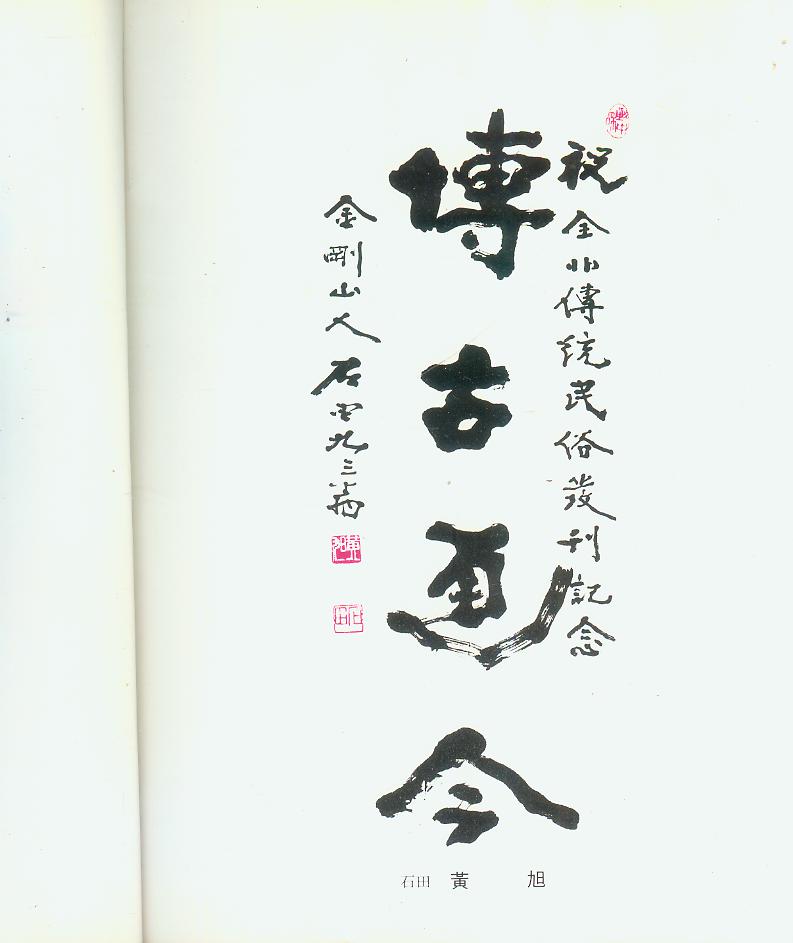 祝全北傳統民俗發刊記念
傳古通今
金剛山人石田九三翁
黃旭
石田
石田 黃 旭